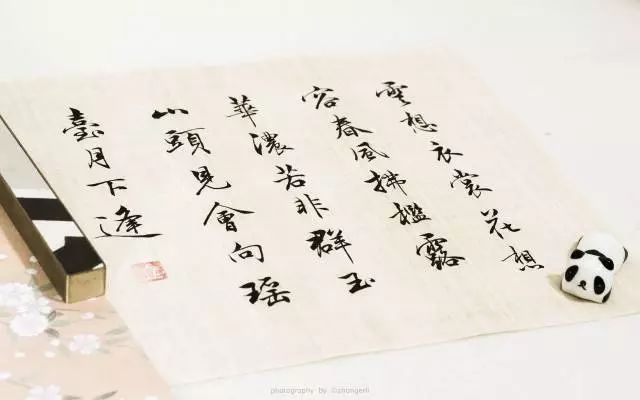 雲想衣裳花想
容春風拂檻露
華濃若非群玉
山頭見會向瑶
臺月下逢
photography by ©zhangerli